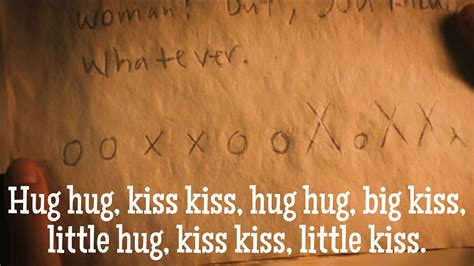 woman! But, you
Whatever.
o o x x o o X o X X x
Hug hug, kiss kiss, hug hug, big kiss,
little hug, kiss kiss, little kiss.